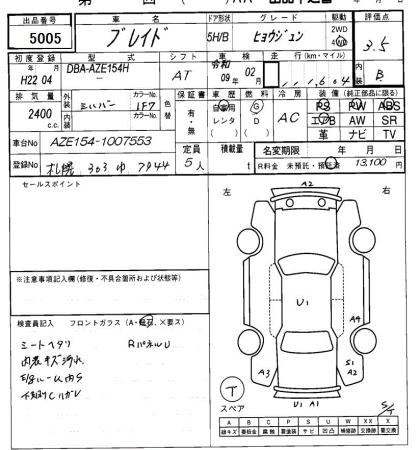 出品番号 車名 ドア形状 グレード 駆動 評価点
5005 ブレイド 5H/B ヒョウジュン 2WD 4WD 3.5
初度登録 型式 シフト 車検 走行(km・マイル) 内装
H22 04 DBA-AZE154H AT 令和 09年 02月 B
排気量 外装 カラーNo. 色替 保証書 車歴 燃料 冷房 装備(純正部品に限る)
2400 c.c. シルバー 1F7 有・無 自家用 レンタ ( ) G D ( ) AC PS PW ABS
内装 カラーNo. エアB AW SR
革 ナビ TV
車台No AZE154-1007553 定員 5人 積載量 t 名変期限 年 月 日
登録No 札幌 303 ゆ 7944 R料金 未預託・預託済 13,100円
セールスポイント
左 A2 右
U1
A4
A3 S1 A2
U1 A1
※注意事項記入欄(修復・不具合箇所および状態等)
検査員記入 フロントガラス(A・飛石、X要ス)
シートヘタリ RパネルU
内装キズ汚れ
スペア
A B C P S U W X XX
線キズ 要板金 腐蝕 要塗装 サビ 凹凸 補修跡 交換跡 要交換